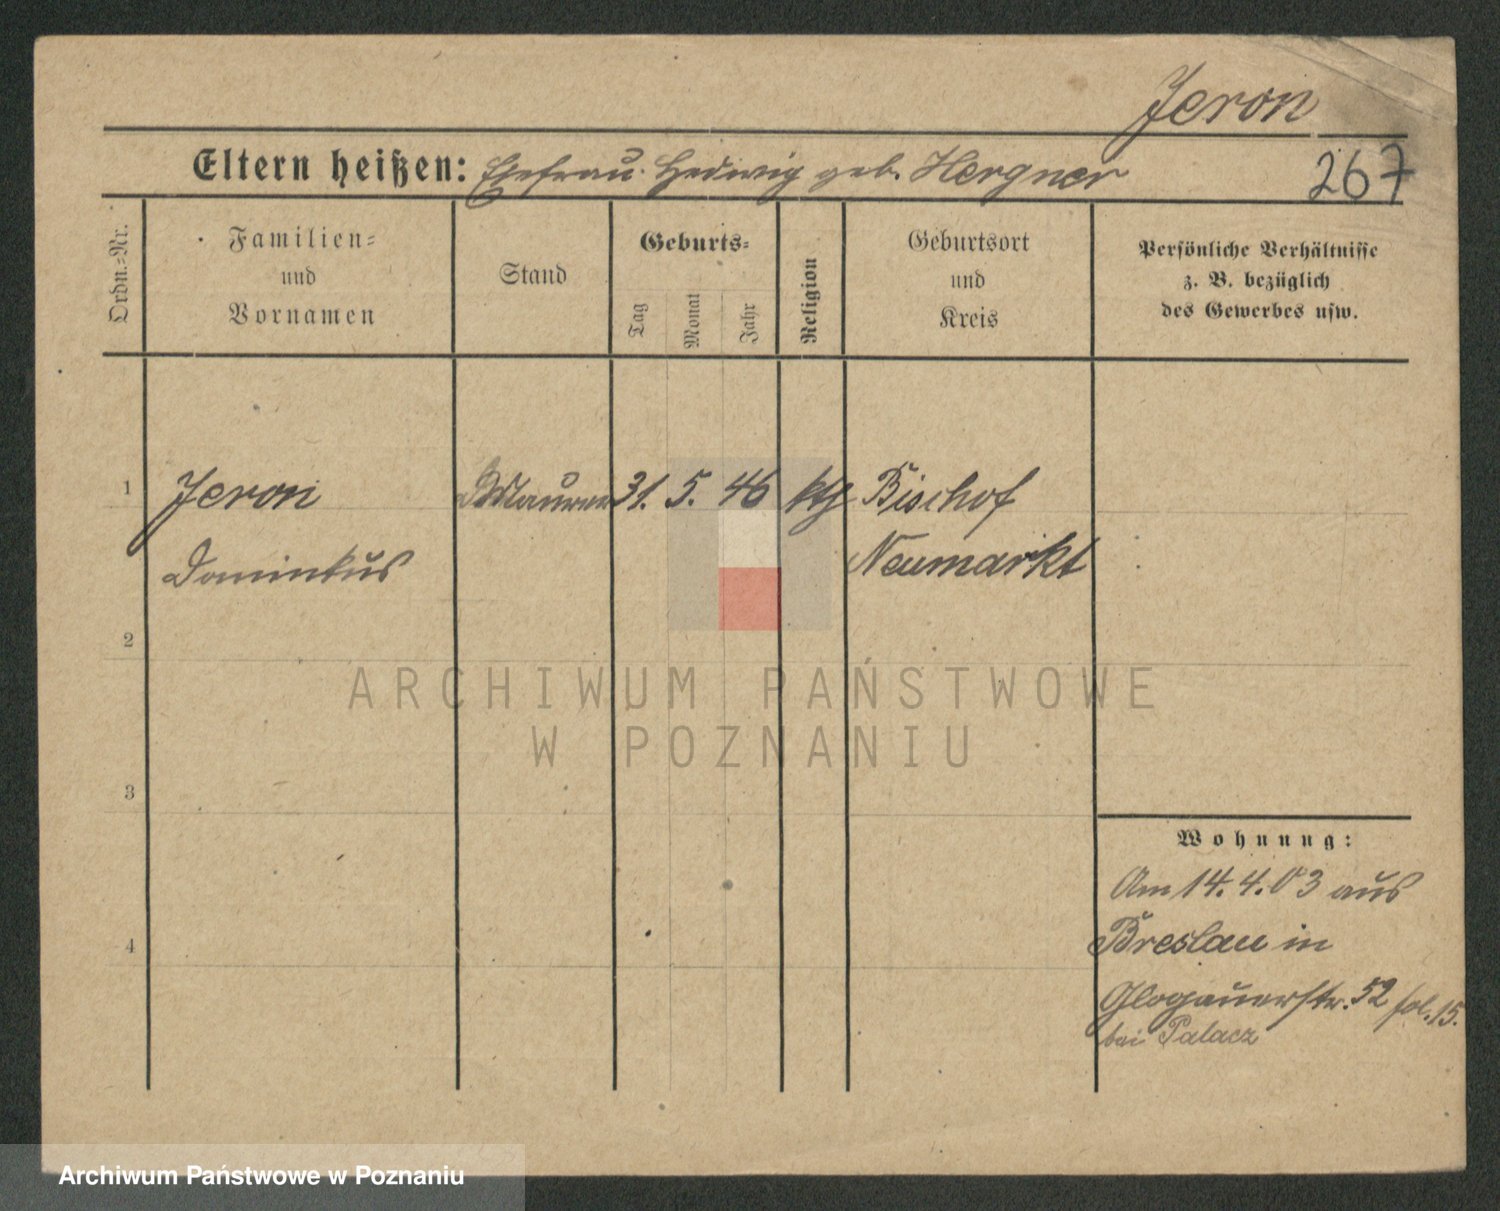 Jeron
Eltern heißen: Ehefrau Hedwig geb. Hergner
267
Ordn.-Nr.
Familien-
und
Vornamen
Stand
Geburts-
Tag
Monat
Jahr
Religion
Geburtsort
und
Kreis
Persönliche Verhältnisse
z. B. bezüglich
des Gewerbes usw.
1 Jeron Maurer 31. 5. 46 kth Bischof
Dominikus Neumarkt
2
ARCHIWUM PAŃSTWOWE
W POZNANIU
3
Wohnung:
Am 14.4.03 aus
Breslau in
4
Glogauerstr. 52 fol. 15.
bei Palacz
Archiwum Państwowe w Poznaniu